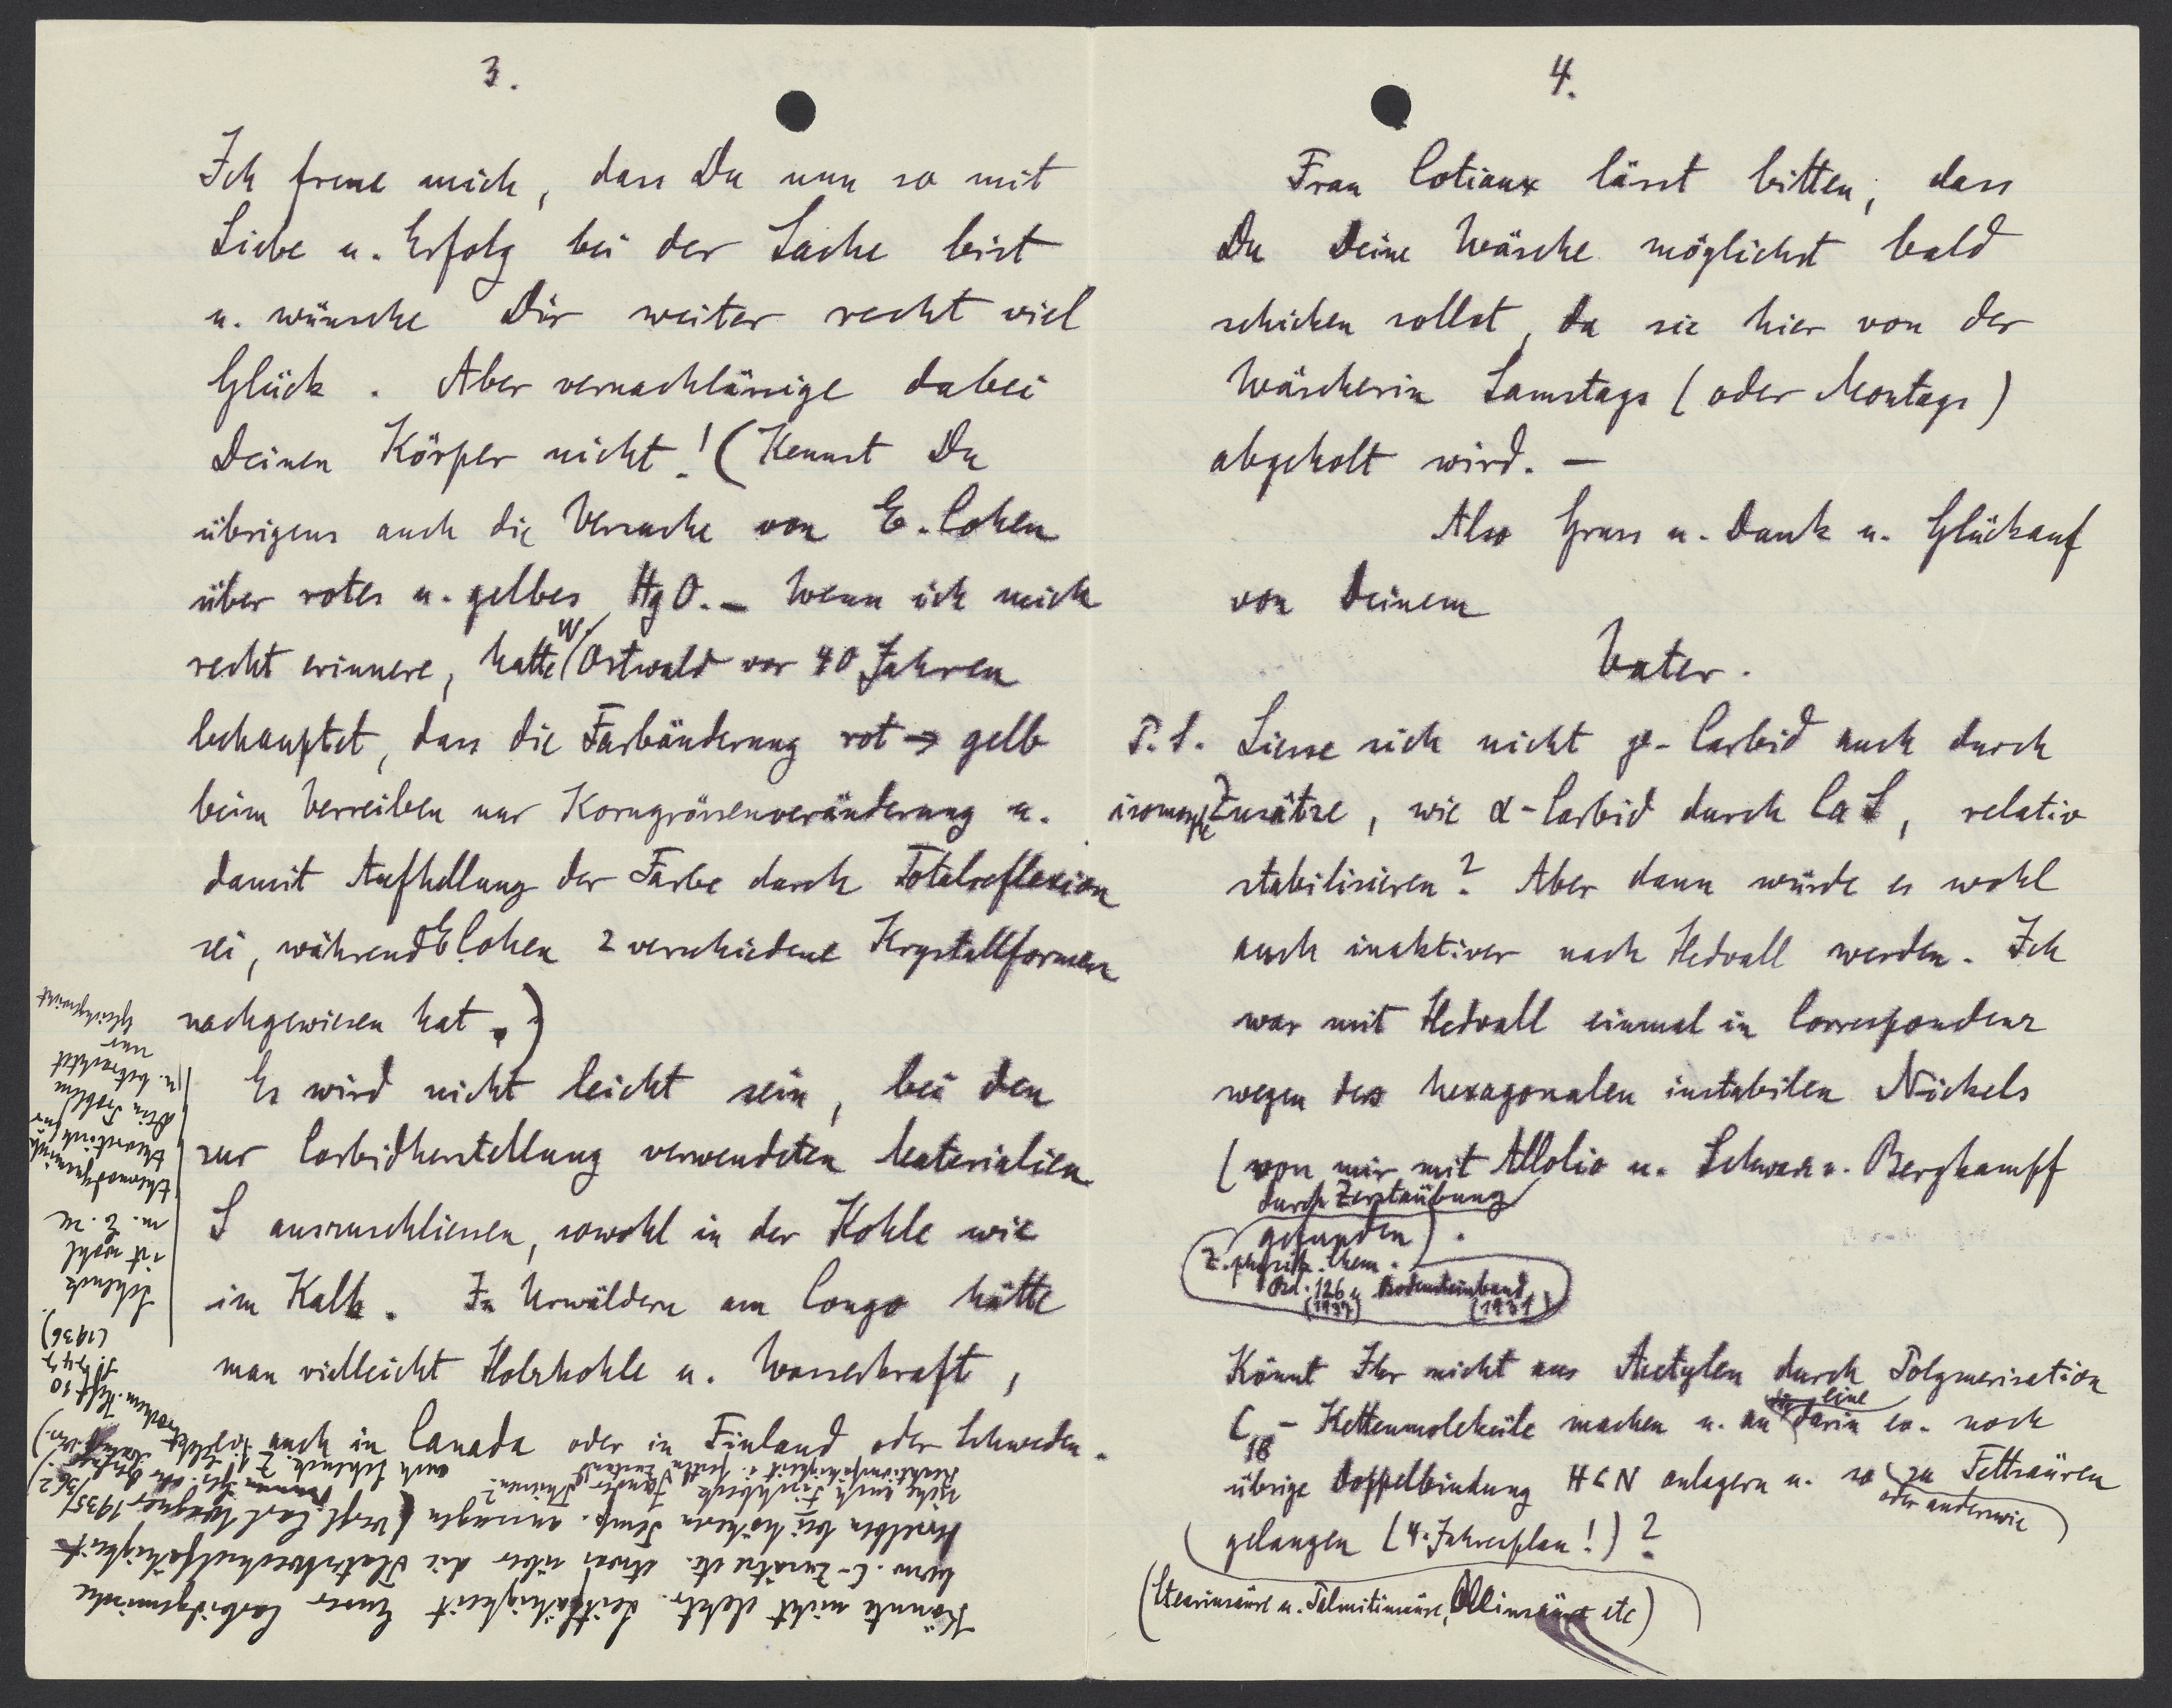 3.
Ich freue mich, dass Du nun so mit
Liebe u. Erfolg bei der Sache bist
u. wünsche Dir weiter recht viel
Glück. Aber vernachlässige dabei
Deinen Körper nicht! (Kennst Du
übrigens auch die Versuche von E. Cohen
über rotes u. gelbes HgO. – Wenn ich mich
recht erinnere, hatte W. Ostwald vor 40 Jahren
behauptet, dass die Farbänderung rot → gelb
beim Verreiben nur Korngrössenveränderung u.
damit Aufhellung der Farbe durch Totalreflexion
sei, während E. Cohen 2 verschiedene Krystallformen
nachgewiesen hat.)
Es wird nicht leicht sein, bei den
zur Carbidherstellung verwendeten Materialien
S auszuschliessen, sowohl in der Kohle wie
im Kalk. In Urwäldern am Congo hätte
man vielleicht Holzkohle u. Wasserkraft,
auch in Canada oder in Finland oder Schweden.
Könnte nicht elektr. Leitfähigkeit Eurer Carbidgemische
bezw. C-Zusätze etc. etwas über die Platzwechselfähigkeit
derselben bei höheren Temp. aussagen (Vergl. Carl Wagner 1935/362)
siehe auch Fischbeck
Reaktionsfähigkeit i. festen Zustand
auch Schenck, Z.
Heft 10
S. 747
(1936)
Schenck
ist wohl
m. E. zu
thermodynamisch
theoretisch für
Dein Problem
u. betrachtet
nur
Gleichgewicht
4.
Frau Cotiaux lässt bitten, dass
Du Deine Wäsche möglichst bald
schicken sollst, da sie hier von der
Wäscherin Samstags (oder Montags)
abgeholt wird. –
Also Gruss u. Dank u. Glückauf
von Deinem
Vater.
P.S. Liesse sich nicht γ-Carbid auch durch
isomorphe Zusätze, wie α-Carbid durch CaS, relativ
stabilisieren? Aber dann würde es wohl
auch inaktiver nach Hedvall werden. Ich
war mit Hedvall einmal in Correspondenz
wegen des hexagonalen instabilen Nickels
(von mir mit Allolio u. Schwarz v. Bergkampf
durch Zerstäubung
gefunden).
Z. physik. Chem.
Bd. 126 u. Bodensteinband
(1927) (1931)
Könnt Ihr nicht aus Acetylen durch Polymerisation
C18-Kettenmoleküle machen u. an eine darin ev. noch
übrige Doppelbindung HCN anlagern u. so zu Fettsäuren
oder anderswie
gelangen (4-Jahresplan!)?
(Stearinsäure u. Palmitinsäure, Ölinsäure etc)